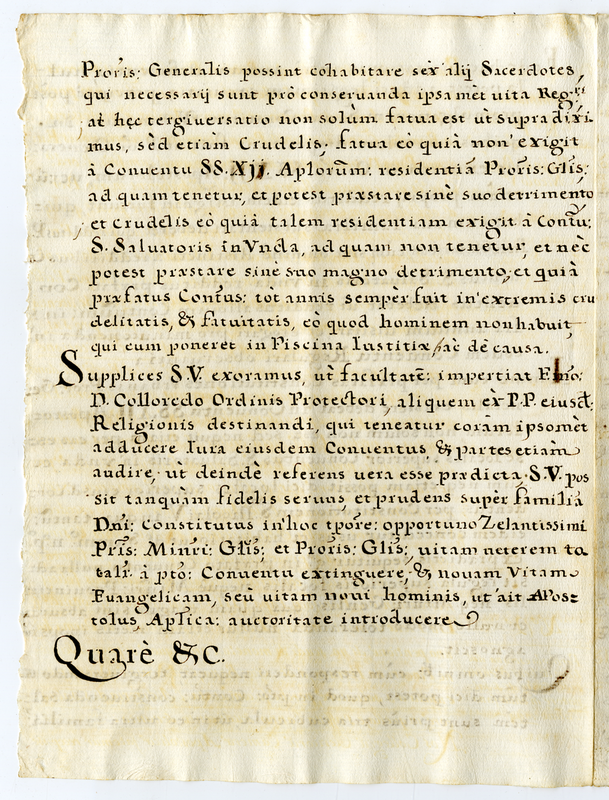 Proris: Generalis possint cohabitare sex alij Sacerdotes,
qui necessarij sunt prò conservanda ipsamèt vita Reg:ri
at hęc tergiversatio non solùm fatua est ut supradixi
mus, sèd etiàm Crudelis; fatua eò quià non exigit
à Conventu SS. XII. Aplorum: residentiã Proris: Glis;
ad quam tenetur, et potest præstare sinè suo detrimento
et crudelis eò quià talem residentiam exigit à Contu:
S. Salvatoris in Unda, ad quam non tenetur, et nèc
potest præstare sinè suo magno detrimento, et quià
præfatus Contus: tòt annis sempèr fuit in extremis cru
delitatis, & fatuitatis, eò quod hominem non habuit
qui eum poneret in Piscina Iustitiæ, hac dè causa.
Supplices S.V. exoramus, ùt facultatẽ: impertiat Emo:
D. Colloredo Ordinis Protectori, aliquem èx P.P. eiusd:
Religionis destinandi, qui teneatur coràm ipsomèt
adducere Iura eiusdem Conventus, & partes etiàm
audire, ùt deindè referens vera esse prædicta S.V. pos
sit tanquàm fidelis servus, et prudens supèr familiã
Dni: Constitutus in hoc tpore: opportuno Zelantissimi
Pris: Minri: Glis; et Proris: Glis; vitam veterem to
talr. à pto: Conventu extinguere, & novam Vitam
Evangelicam, seù vitam novi hominis, ut ait Apos=
tolus, Aplica: auctoritate introducere
Quarè &c.